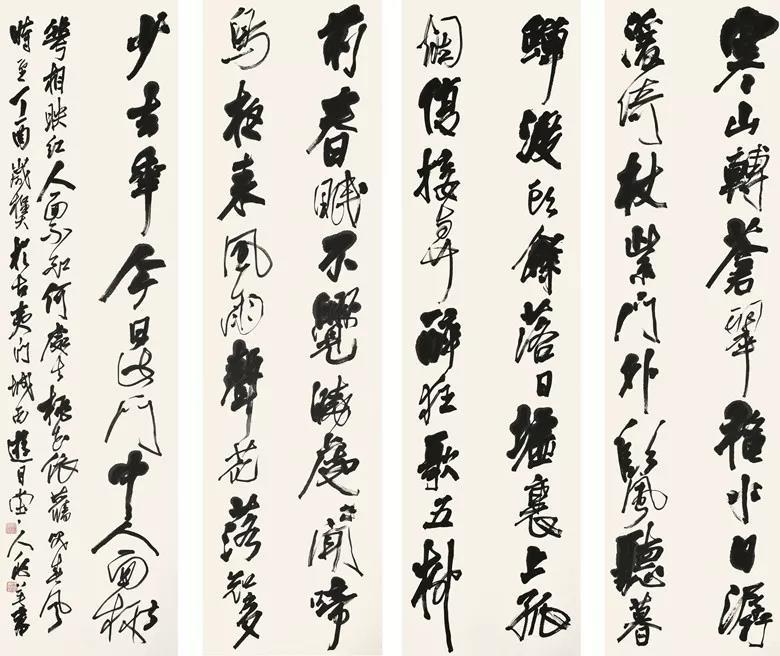 寒山轉蒼翠秋水日潺
湲倚杖柴門外臨風聽暮
蟬渡頭餘落日墟裏上孤
復接輿醉狂歌五柳
前春眠不覺曉處々聞啼
鳥夜來風雨聲花落知多
少去年今日此門中人面桃
華相映紅人面不知何處去桃花依舊笑春風
時至丁酉歲於古夷門城西遊日堂人書